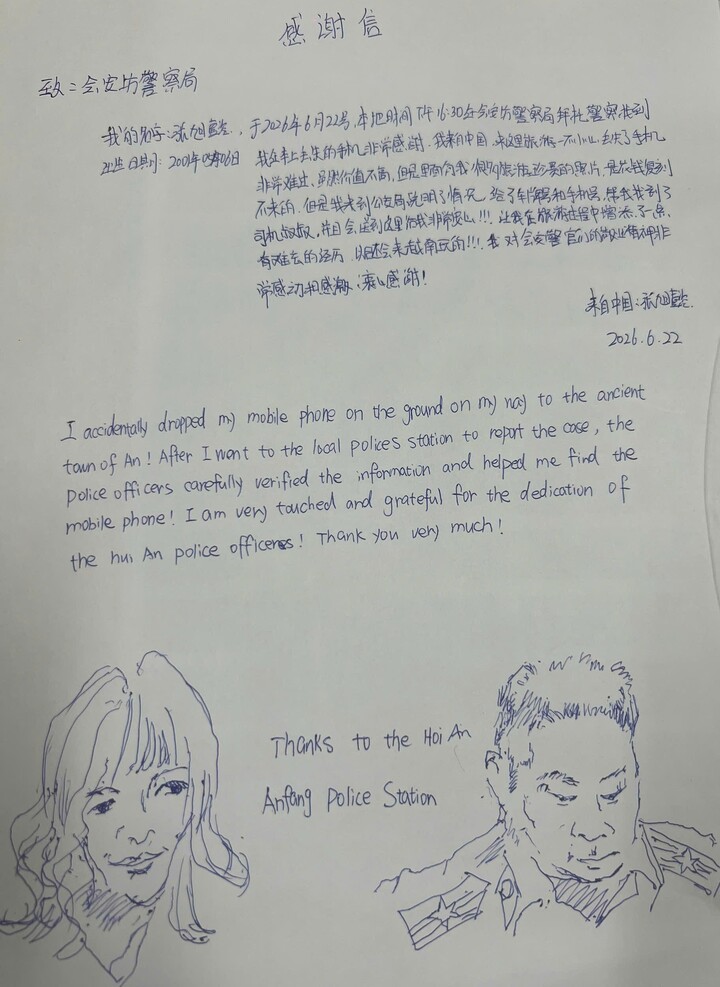 感谢信
致：会安坊警察局
我的名字：张旭，于2026年6月22号，本地时间下午16:30在会安坊警察局拜托警察找到
出生日期：2001年05月06日 我在车上丢失的手机非常感谢。我来自中国，来这里旅游不小心丢失了手机
非常难过，虽然价值不高，但是里面有我很多旅游珍贵的照片，是花钱复刻
不来的，但是我来到公安局说明了情况，给了车牌号和手机号，帮我找到了
司机叔叔，并且会送到这里给我非常安心!!! 让我在旅游过程中增添了一条
有难忘的经历，以后还会来越南玩的!!! 我对会安警官们的敬业精神非
常感动和感激，衷心感谢！
来自中国：张旭
2026.6.22
I accidentally dropped my mobile phone on the ground on my nay to the ancient
town of An! After I want to the local polices station to report the case, the
police officers carefully verified the information and helped me find the
mobile phone! I am very touched and grateful for the dedication of
the hui An police officeres! Thank you very much!
Thanks to the Hoi An
Anfang Police Station